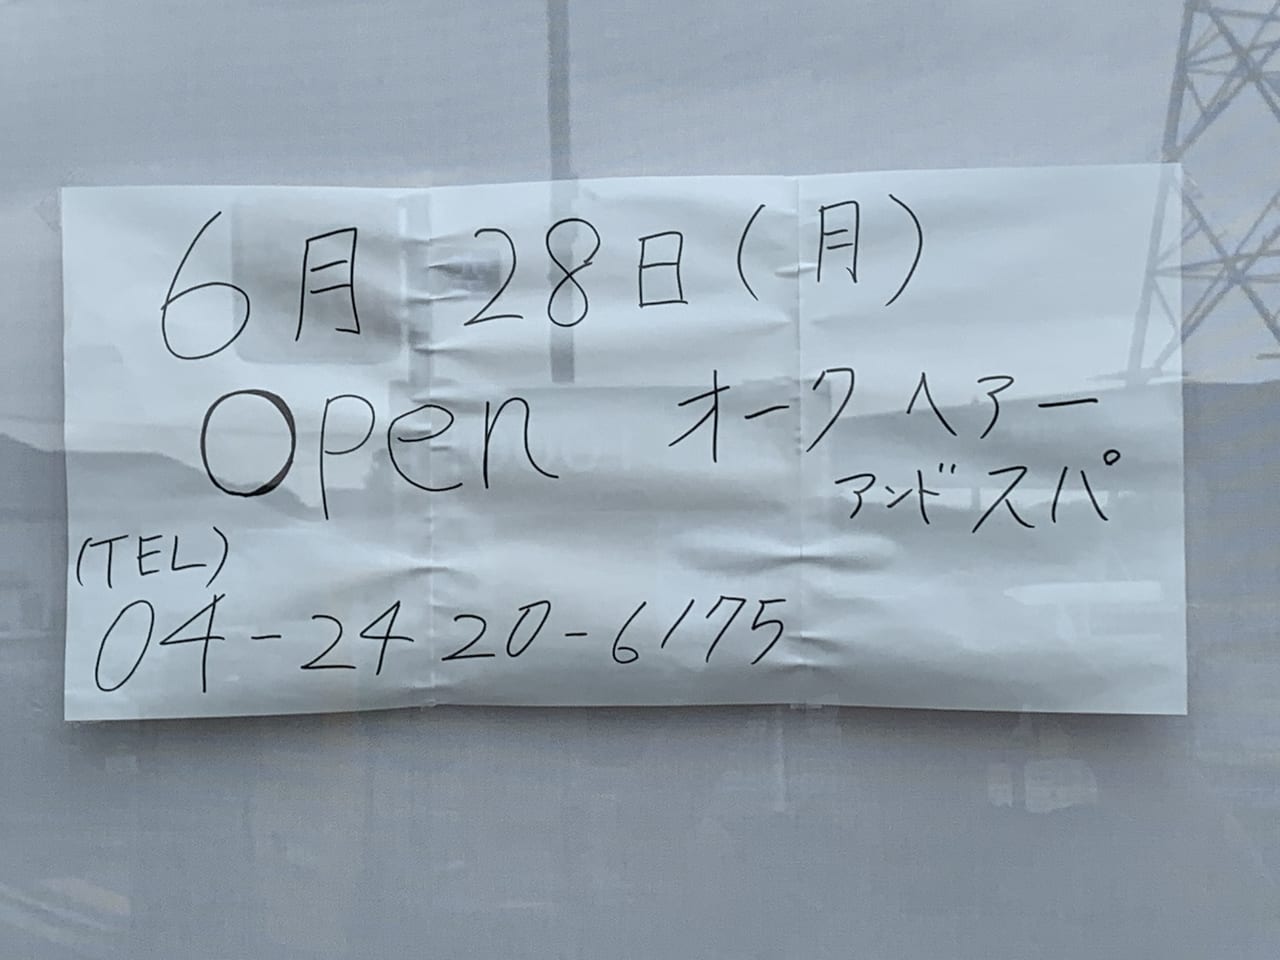 6月28日(月)
open オークヘアー
アンドスパ
(TEL)
04-2420-6175